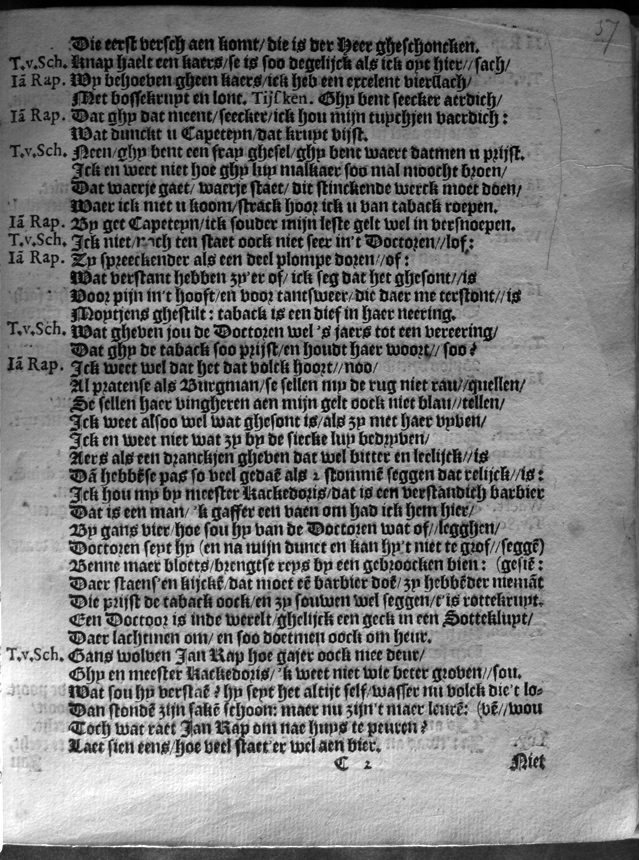 37
Die eerst versch aen komt/ die is der Heer gheschoncken.
T.v.Sch. Knap haelt een kaers/ se is soo degelijck als ick oyt hier// sach/
Iā Rap. Wy behoeven gheen kaers/ ick heb een excelent vierslach/
Met bossekruyt en lont. Tijsken. Ghy bent seecker aerdich/
Iā Rap. Dat ghy dat meent/ seecker/ ick hou mijn tuychjen vaerdich:
Wat dunckt u Capeteyn/ dat kruyt vijst.
T.v.Sch. Neen/ ghy bent een fray ghesel/ ghy bent waert datmen u prijst.
Ick en weet niet hoe ghy luy malkaer soo mal moocht broen/
Dat waerje gaet/ waerje staet/ dit stinckende werck moet doen/
Waer ick niet u koom/ strack hoor ick u van taback roepen.
Iā Rap. By get Capeteyn/ ick souder mijn leste gelt wel in versnoepen.
T.v.Sch. Ick niet/ noch ten staet oock niet seer in't Doctoren// lof:
Iā Rap. Zy spreeckender als een deel plompe doren// of:
Wat verstant hebben zy'er of/ ick seg dat het ghesont// is
Voor pijn in't hooft/ en voor tantsweer/ die daer me terstont// is
Moytjens ghestilt: taback is een dief in haer neering.
T.v.Sch. Wat gheven jou de Doctoren wel 's jaers tot een vereering/
Dat ghy de taback soo prijst/ en houdt haer woort// soo?
Iā Rap. Ick weet wel dat het dat volck hoort// noo/
Al pratense als Burgman/ se sellen my de rug niet rau// quellen/
Se sellen haer vingheren aen mijn gelt oock niet blau// tellen/
Ick weet alsoo wel wat ghesont is/ als zy met haer vyven/
Ick en weet niet wat zy by de siecke luy bedryven/
Aers als een dranckjen gheven dat wel bitter en leelijck// is
Dā hebbēse pas so veel gedaē als 2 stommē seggen dat relijck// is:
Ick hou my by meester Kackedoris/ dat is een verstandich barbier
Dat is een man/ 'k gaffer een vaen om had ick hem hier/
By gans vier/ hoe sou hy van de Doctoren wat of// legghen/
Doctoren seyt hy (en na mijn dunct en kan hy't niet te grof// seggē)
Benne maer bloets/ brengtse reys by een gebroocken bien: (gesiē:
Daer staens'en kijckē/ dat moet eē barbier doē/ zy hebbēder niemāt
Die prijst de taback oock/ en zy souwen wel seggen/ t'is rottekruyt.
Een Doctoor is inde werelt/ ghelijck een geck in een Sotteklupt/
Daer lachtmen om/ en soo doetmen oock om heur.
T.v.Sch. Gans wolven Jan Rap hoe gajer oock mee deur/
Ghy en meester Kackedoris/ 'k weet niet wie beter groven// sou.
Wat sou hy verstaē? hy seyt het altijt self/ wasser nu volck die't lo-
Dan stondē zijn sakē schoon: maer nu zijn't maer leurē: (vē// wou
Toch wat raet Jan Rap om nae huys te peuren?
Laet sien eens/ hoe veel staet'er wel aen bier.
C 2 Niet